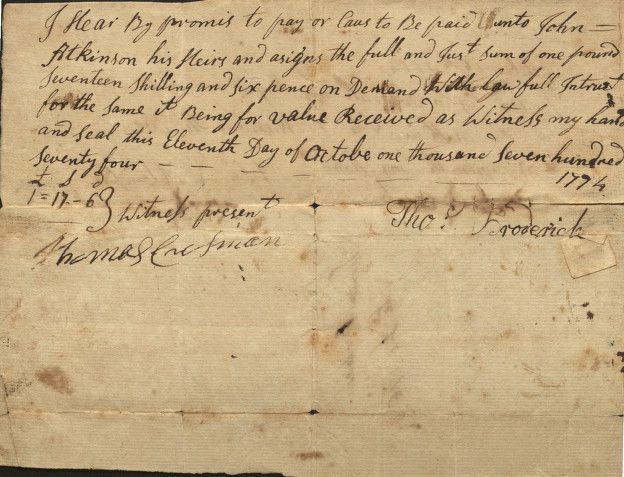 I Hear By promis to pay or Caus to Be paid unto John =
Atkinson his Heirs and asigns the full and Just sum of one pound
seventeen Shilling and six pence on Demand With Lawfull Intrust
for the same it Being for value Received as Witness my hand
and seal this Eleventh Day of Octobe one thousand Seven hundred
seventy four — — — — — — 1774
£ S d
1=17-6
Witness present
Thos. Froderick
Thomas Cresman